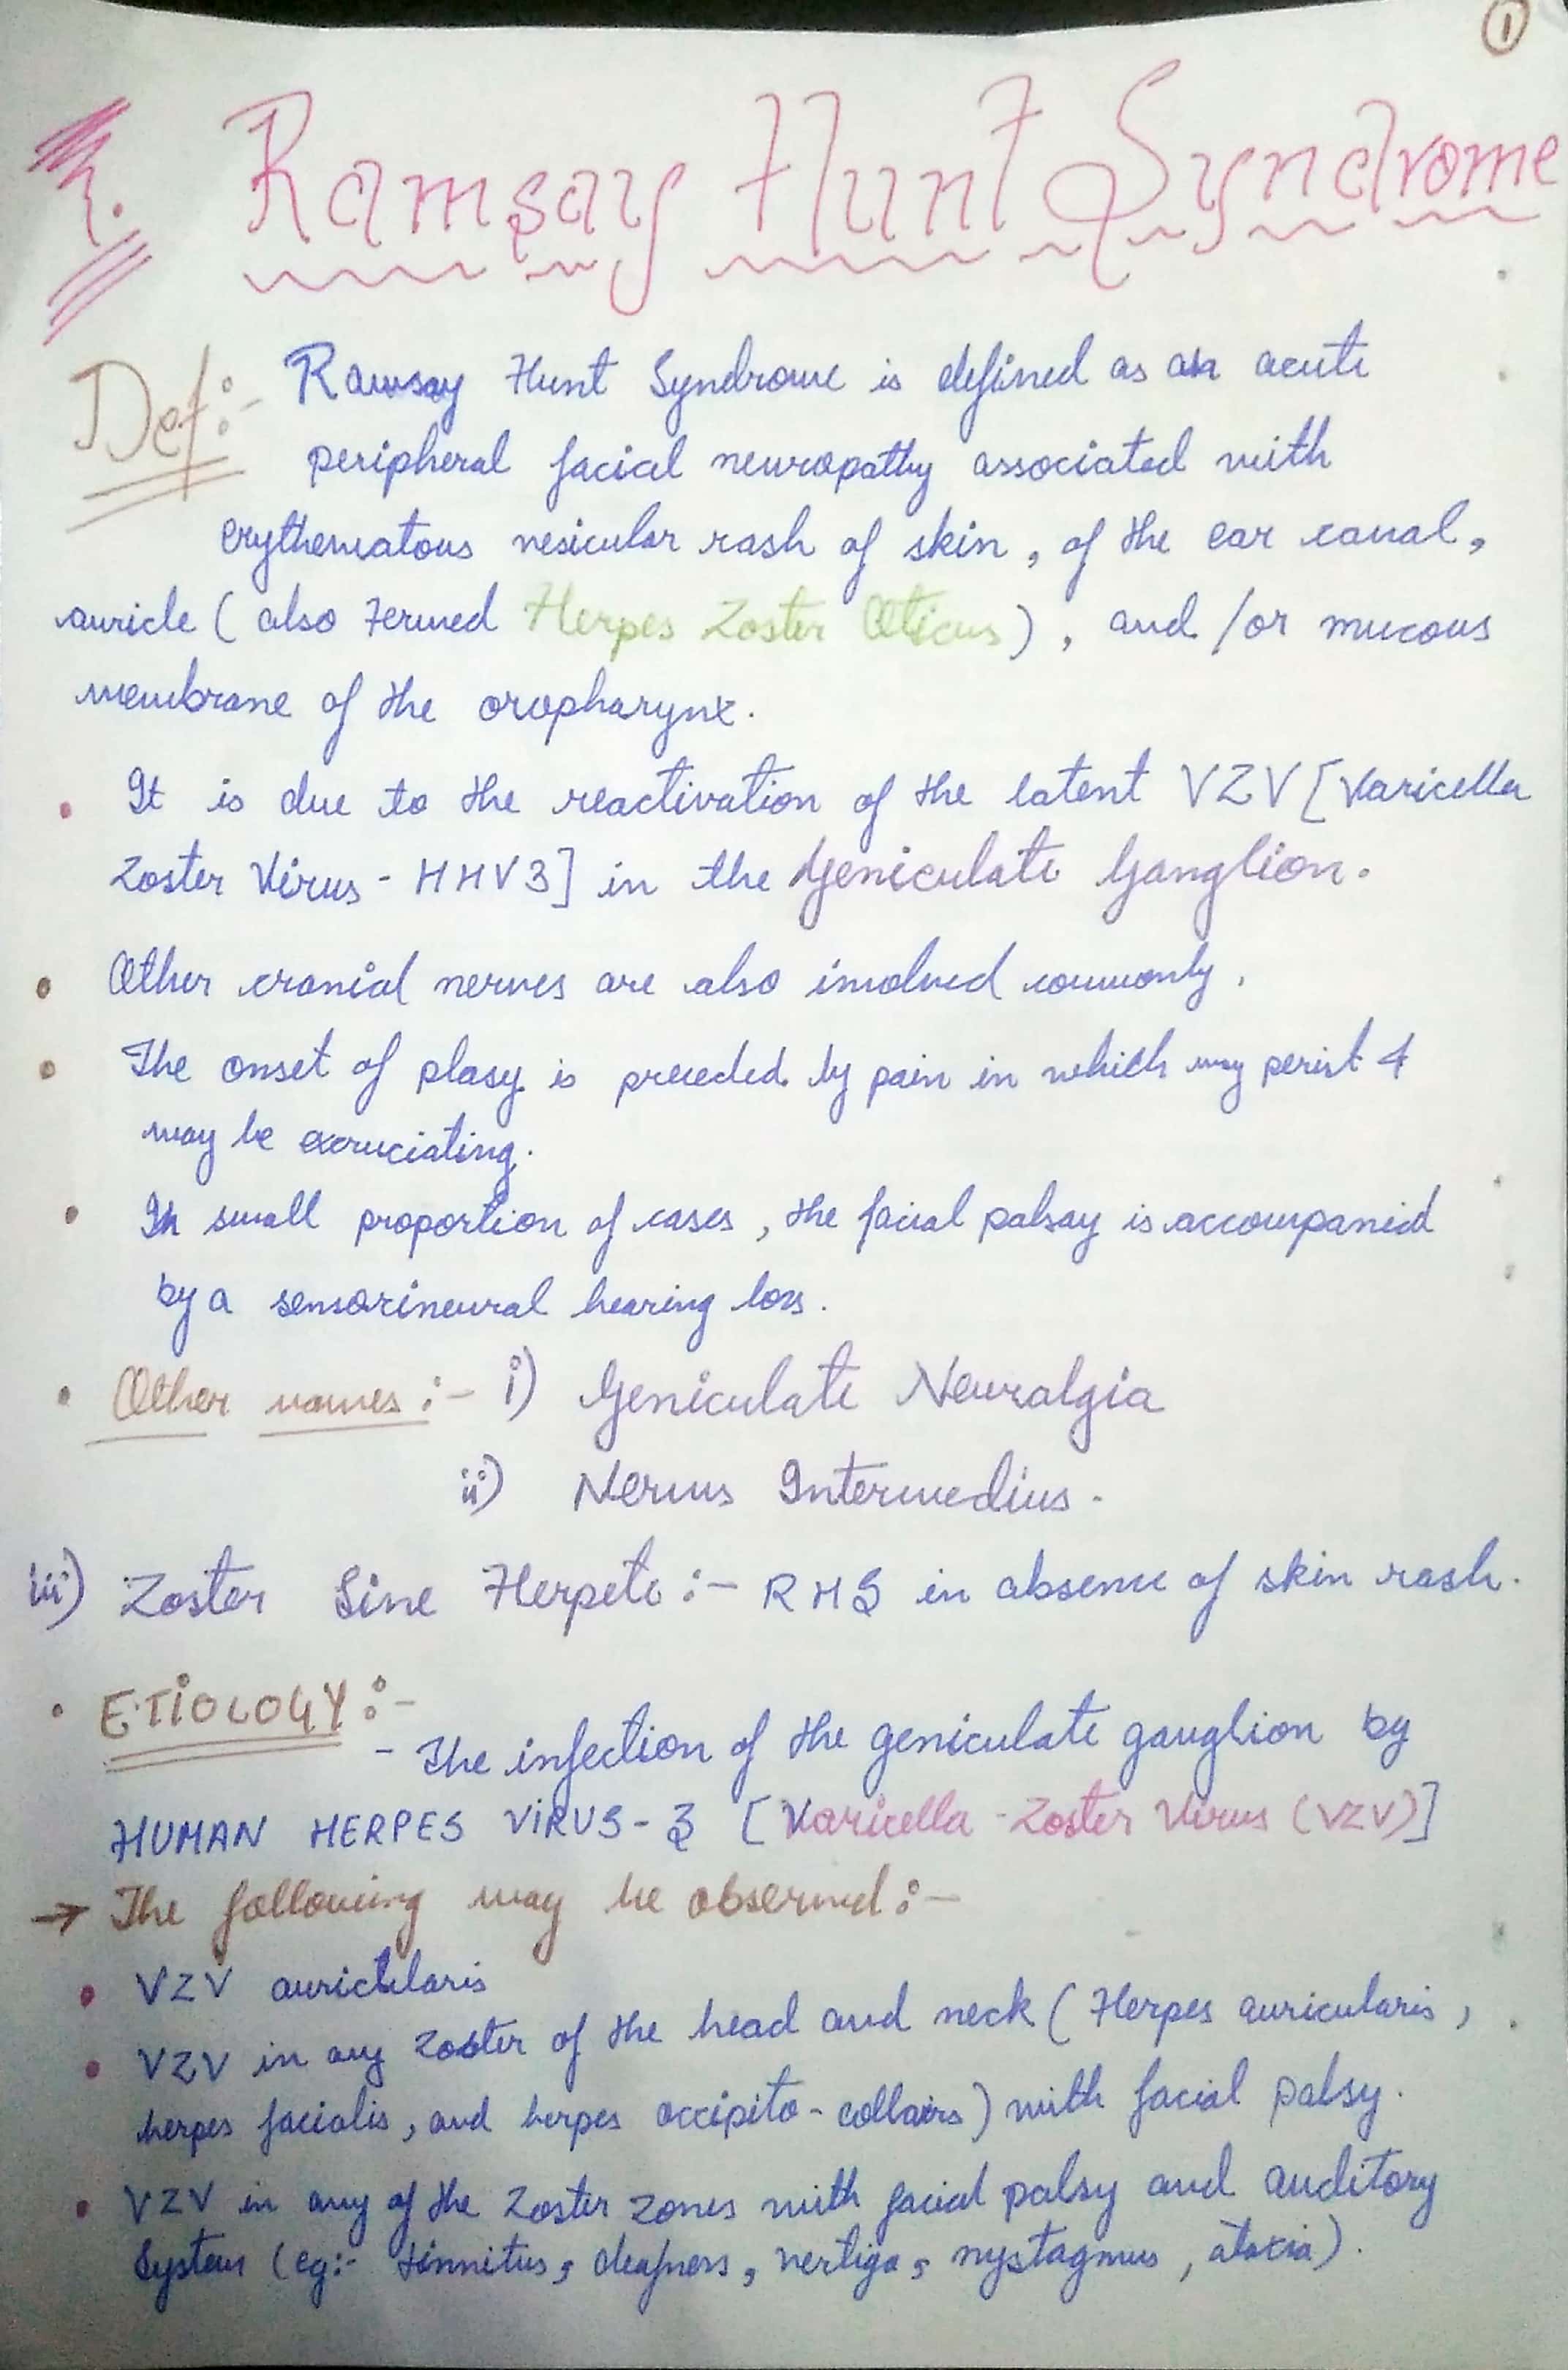 1
Ramsay Hunt Syndrome
Def:- Ramsay Hunt Syndrome is defined as an acute
peripheral facial neuropathy associated with
erythematous vesicular rash of skin, of the ear canal,
auricle ( also termed Herpes Zoster Oticus ) , and /or mucous
membrane of the oropharynx.
• It is due to the reactivation of the latent VZV [Varicella
Zoster Virus - HHV3] in the Geniculate Ganglion.
• Other cranial nerves are also involved commonly.
• The onset of plasy is preceded by pain in which may perist &
may be excruciating.
• In small proportion of cases , the facial palsay is accompanied
by a sensorineural hearing loss.
• Other names :- i) Geniculate Neuralgia
ii) Nervus Intermedius.
iii) Zoster Sine Herpete :- RHS in absence of skin rash.
• ETIOLOGY :-
- The infection of the geniculate ganglion by
HUMAN HERPES VIRUS-3 [Varicella-Zoster Virus (VZV)]
→ The following may be observed :-
• VZV auricularis
• VZV in any zoster of the head and neck ( Herpes auricularis ,
herpes facialis , and herpes occipito-collairs ) with facial palsy.
• VZV in any of the zoster zones with facial palsy and auditory
System (eg:- tinnitus, deafness, vertigo, nystagmus , ataxia).